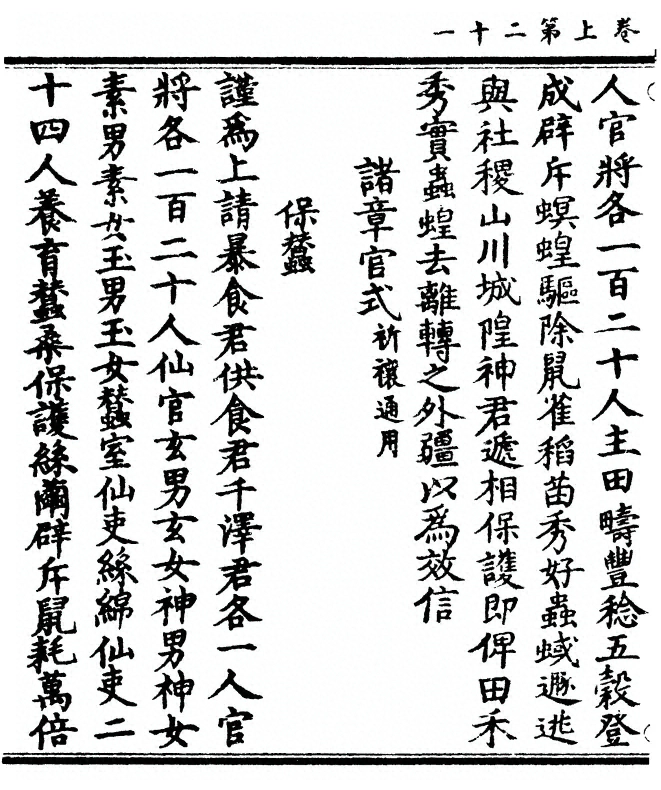 卷上第二十一
人官將各一百二十人主田疇豐稔五穀登
成辟斥螟蝗驅除鼠雀稻苗秀好蟲蜮遯逃
與社稷山川城隍神君遞相保護即俾田禾
秀實蟲蝗去離轉之外疆以為效信
諸章官式祈禳通用
保蠶
謹為上請暴食君供食君千澤君各一人官
將各一百二十人仙官玄男玄女神男神女
素男素女玉男玉女蠶室仙吏絲綿仙吏二
十四人養育蠶桑保護絲繭辟斥鼠耗萬倍